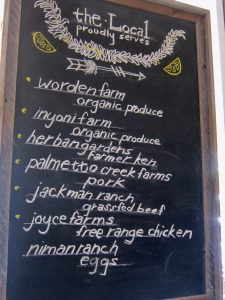 the Local
proudly serves
worden farm
organic produce
inyoni farm
organic produce
herban gardens
farmer ken
palmetto creek farms
pork
jackman ranch
grassfed beef
joyce farms
free range chicken
niman ranch
eggs